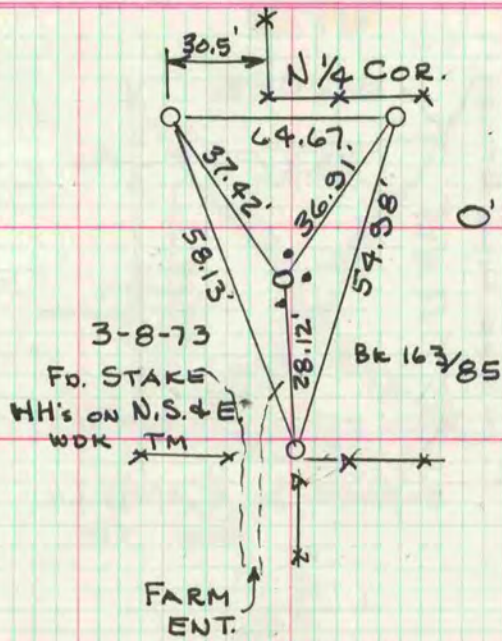 30.5'
N 1/4 COR.
64.67.
37.42'
36.91
58.13'
54.98'
28.12'
3-8-73
BK 163/85
FD. STAKE
HH's ON N.S. & E.
WDK TM
FARM
ENT.